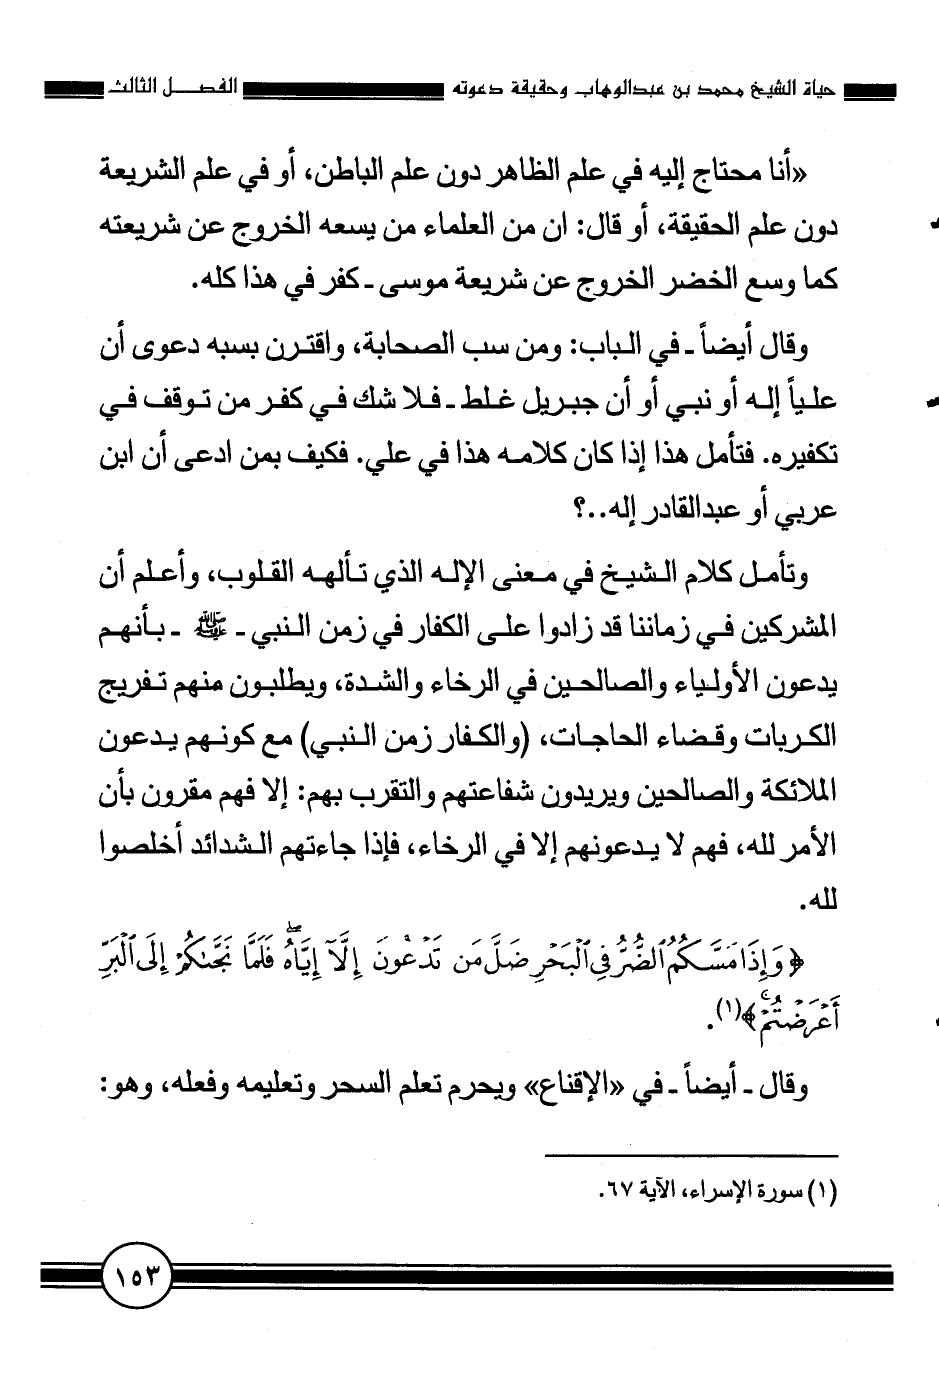 حياة الشيخ محمد بن عبدالوهاب وحقيقة دعوته
الفصل الثالث
«أنا محتاج إليه في علم الظاهر دون علم الباطن، أو في علم الشريعة
دون علم الحقيقة، أو قال: ان من العلماء من يسعه الخروج عن شريعته
كما وسع الخضر الخروج عن شريعة موسى ـ كفر في هذا كله.
وقال أيضاً ـ في الباب: ومن سب الصحابة، واقترن بسبه دعوى أن
علياً إله أو نبي أو أن جبريل غلط ـ فلا شك في كفر من توقف في
تكفيره. فتأمل هذا إذا كان كلامه هذا في علي. فكيف بمن ادعى أن ابن
عربي أو عبدالقادر إله..؟
وتأمل كلام الشيخ في معنى الإله الذي تألهه القلوب، وأعلم أن
المشركين في زماننا قد زادوا على الكفار في زمن النبي ـ ﷺ ـ بأنهم
يدعون الأولياء والصالحين في الرخاء والشدة، ويطلبون منهم تفريج
الكربات وقضاء الحاجات، (والكفار زمن النبي) مع كونهم يدعون
الملائكة والصالحين ويريدون شفاعتهم والتقرب بهم: إلا فهم مقرون بأن
الأمر لله، فهم لا يدعونهم إلا في الرخاء، فإذا جاءتهم الشدائد أخلصوا
لله.
﴿وَإِذَا مَسَّكُمُ ٱلضُّرُّ فِي ٱلْبَحْرِ ضَلَّ مَن تَدْعُونَ إِلَّآ إِيَّاهُ ۖ فَلَمَّا نَجَّىٰكُمْ إِلَى ٱلْبَرِّ
أَعْرَضْتُمْ ۚ﴾(١).
وقال ـ أيضاً ـ في «الإقناع» ويحرم تعلم السحر وتعليمه وفعله، وهو:
(١) سورة الإسراء، الآية ٦٧.
١٥٣